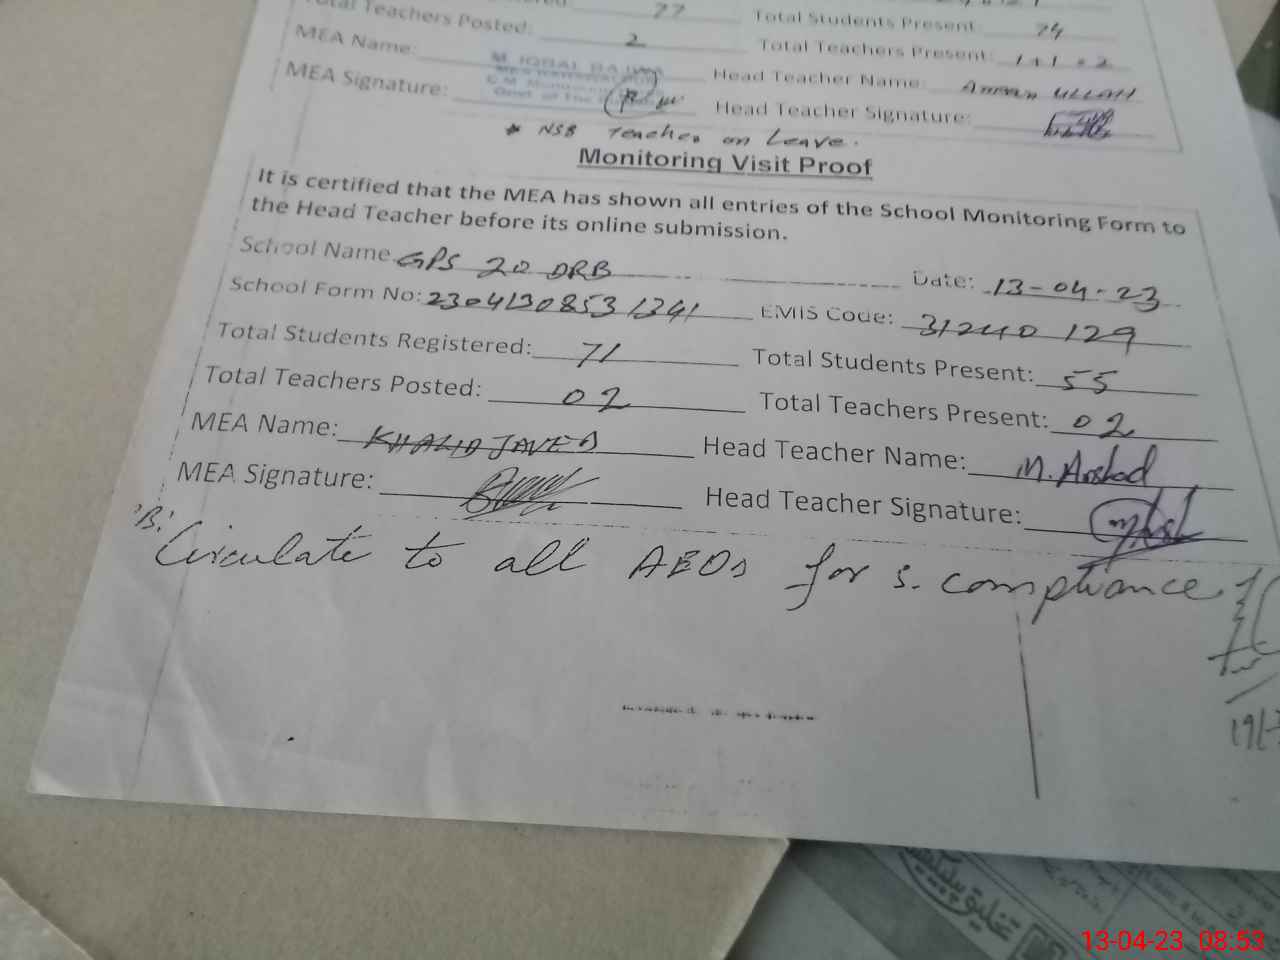 77 Total Students Present: 74
Total Teachers Posted: 2 Total Teachers Present: 1+1=2
MEA Name: M. IQBAL BAJWA Head Teacher Name: ULLAH
MEA Signature: Head Teacher Signature:
* NSB Teacher on Leave.
Monitoring Visit Proof
It is certified that the MEA has shown all entries of the School Monitoring Form to
the Head Teacher before its online submission.
School Name GPS 20 DRB Date: 13-04-23
School Form No: 23041308531341 EMIS Code: 31240129
Total Students Registered: 71 Total Students Present: 55
Total Teachers Posted: 02 Total Teachers Present: 02
MEA Name: KHALID JAVED Head Teacher Name: M. Arshad
MEA Signature: Head Teacher Signature:
'B.'
Circulate to all AEOs for s. compliance
13-04-23 08:53